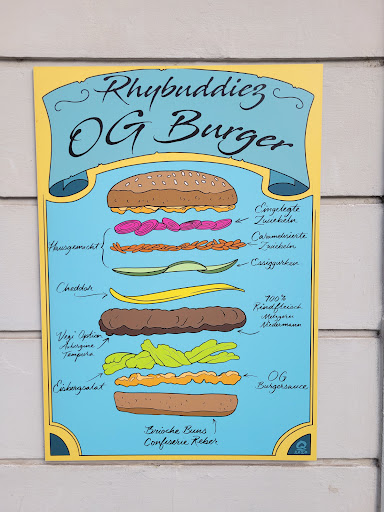 Rhybuddiez
OG Burger
Eingelegte
Zwiebeln
Hausgemacht
Caramelisierte
Zwiebeln
Essiggurken
Cheddar
100%
Rindfleisch
Metzgerei
Niedermann
Vegi Option
Aubergine
Tempura
Eisbergsalat
OG
Burgersauce
Brioche Buns
Confiserie Reber